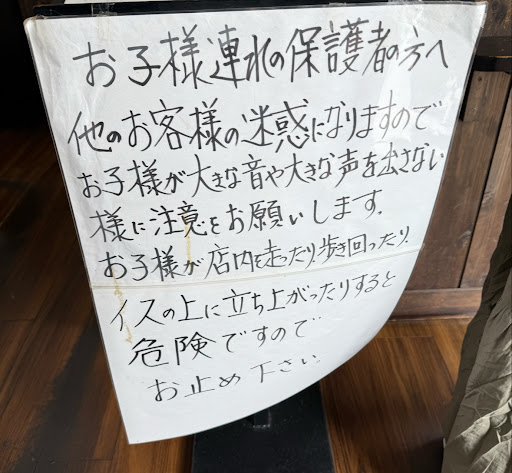 お子様連れの保護者の方へ
他のお客様の迷惑になりますので
お子様が大きな音や大きな声を出さない
様に注意をお願いします.
お子様が店内を走ったり.歩き回ったり.
イスの上に立ち上がったりすると
危険ですので
お止め下さい